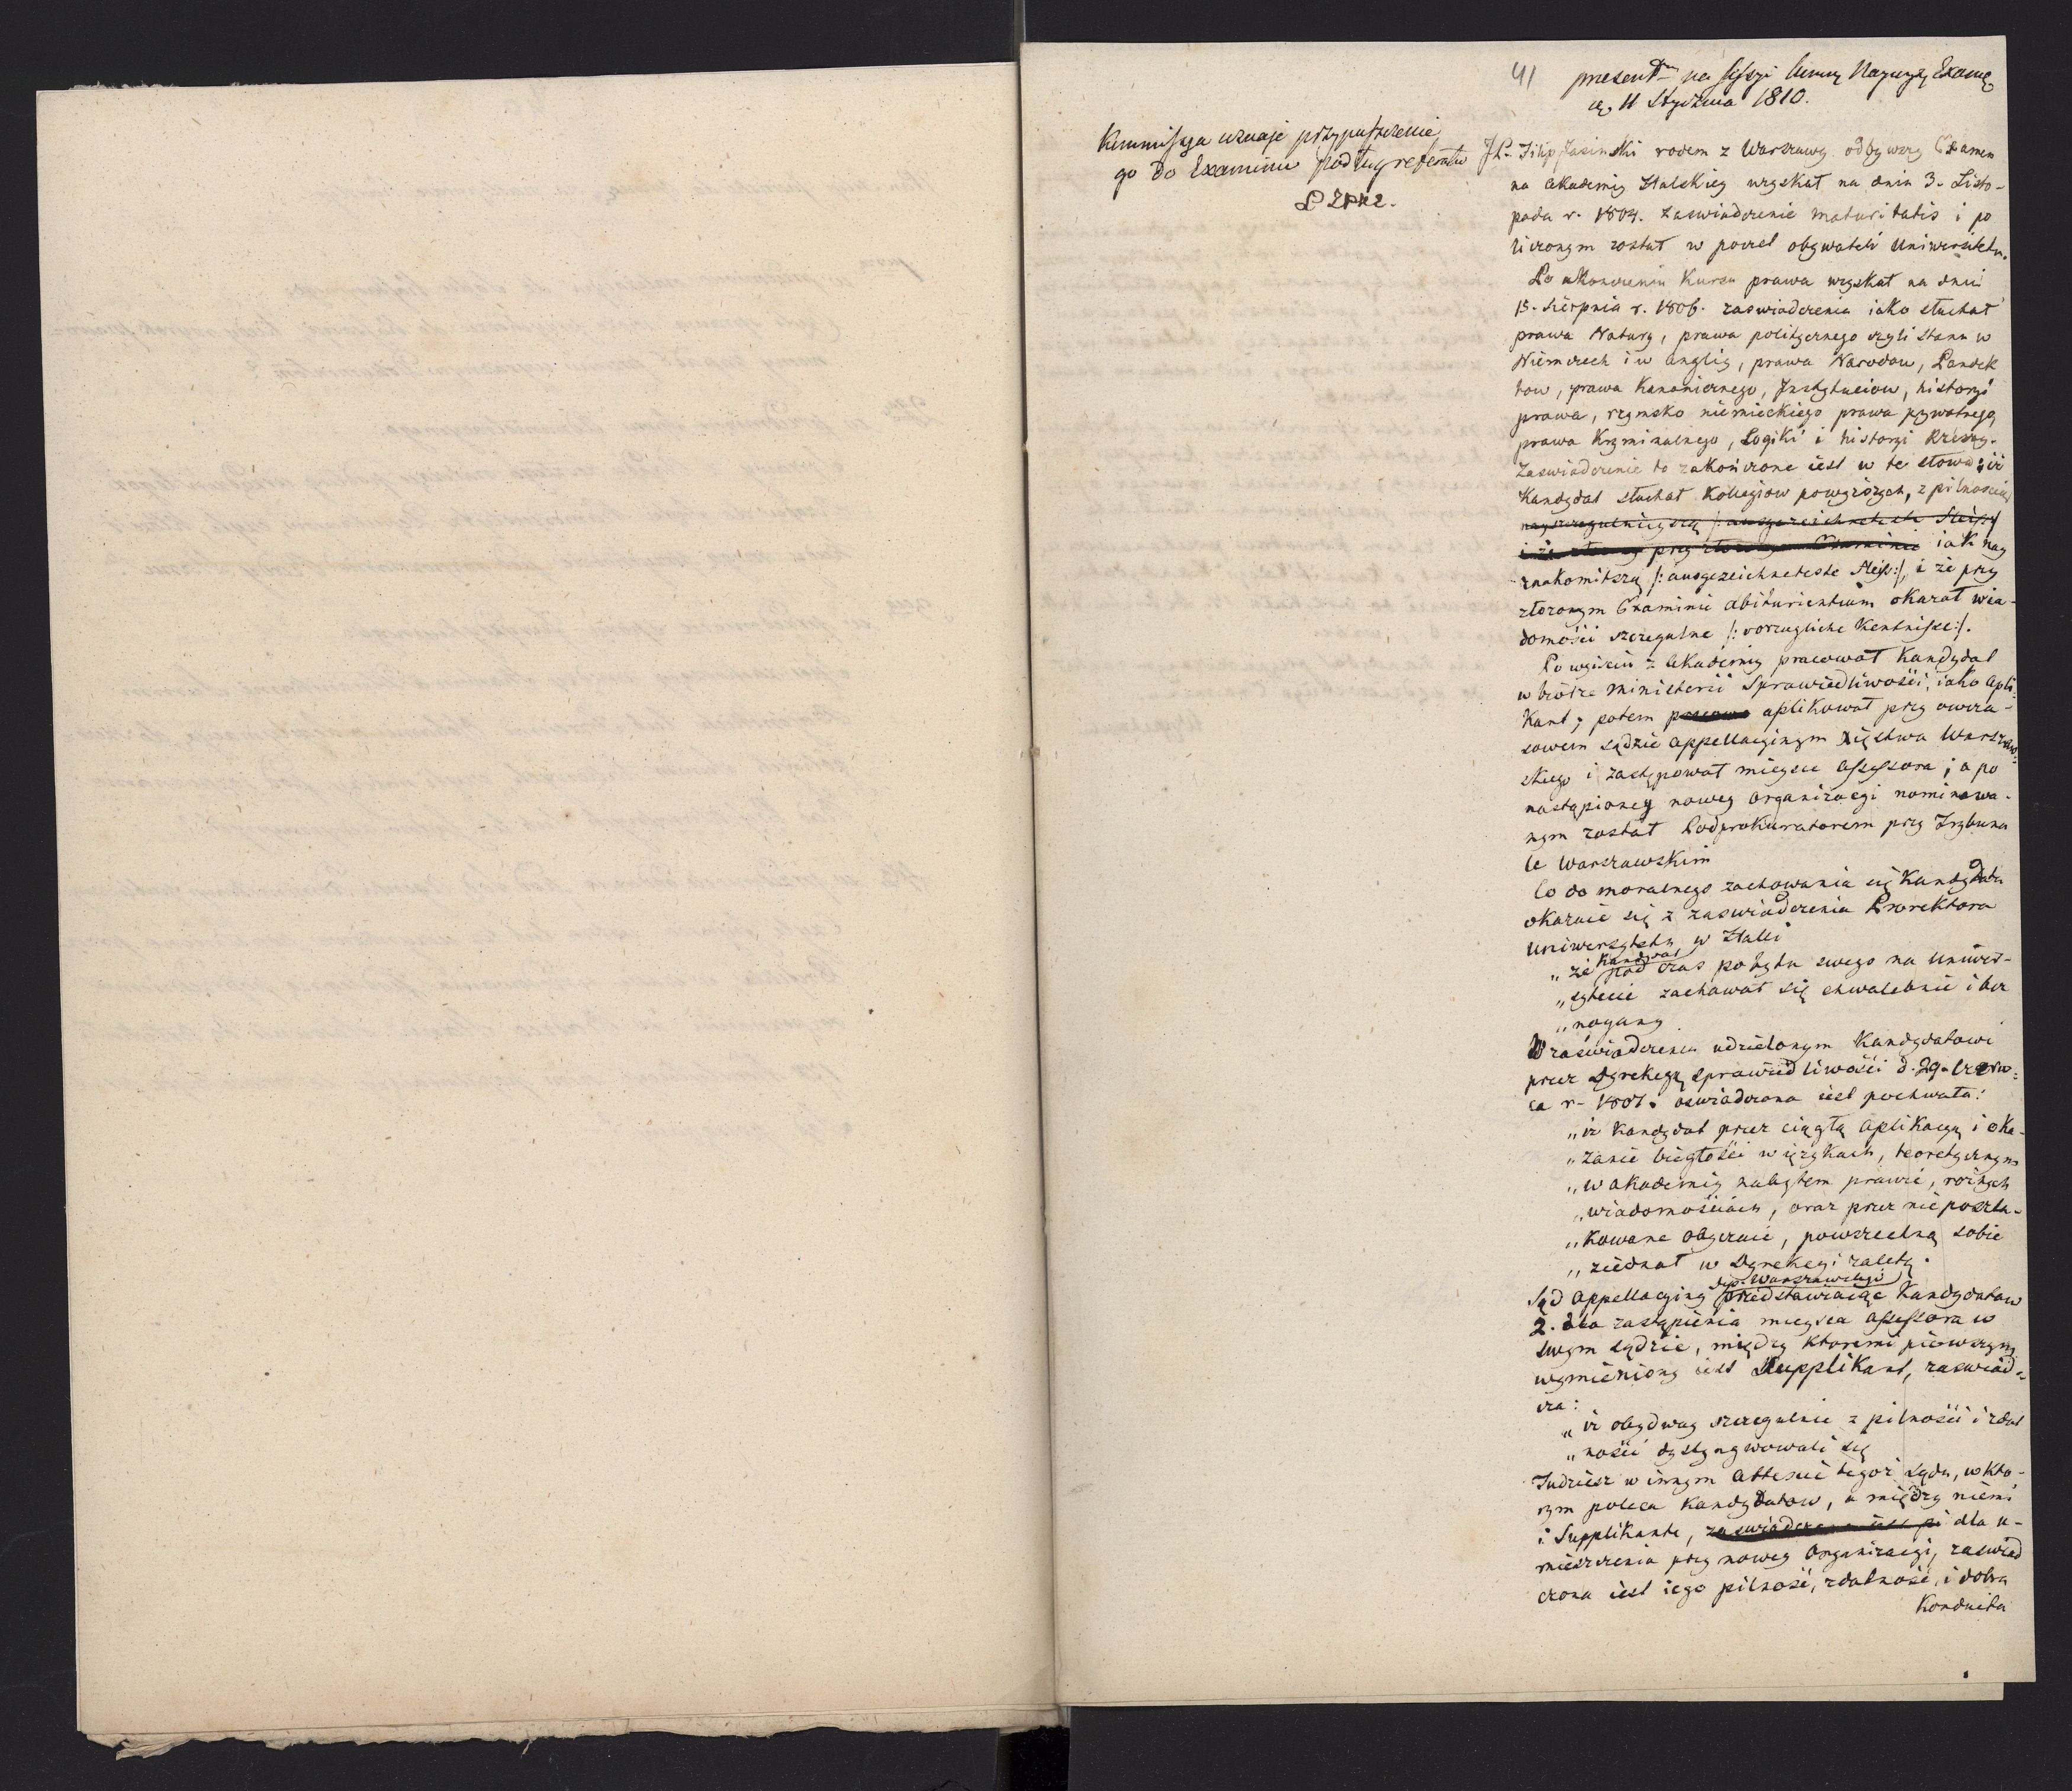 41
present. na sessyi
11 Stycznia 1810.
Kommissya uznaje przypuszczenie
go do Examinu podług referatu
JP. Filip Jasinski rodem z Warszawy odbywszy Examen
na Akademiy Halskiey uzyskał na dniu 3. Listo-
pada r. 1804. zaswiadczenie maturitatis i po
liczonym został w poczet obywateli Uniwersitetu.
Po ukonczeniu Kursu prawa uzyskał na dniu
15. Sierpnia r. 1806. zaswiadczenia iako słuchał
prawa Natury, prawa politycznego czyli stanu w
Niemczech i w angliy, prawa Narodow, Pandek
tow, prawa Kanonicznego, Instytuciow, historyi
prawa, rzymsko niemieckiego prawa prywatnego,
prawa Kryminalnego, Logiki i historyi Rzeszy.
Zaswiadczenie to zakończone iest w te słowa: iż
Kandydat słuchał Kollegiow powyższych, z pilnoscią
nayszczegulnieyszą /: ausgezeichneteste Fleiss
i że przy Examinie iak nay
znakomitszą /: ausgezeichneteste Fleiss :/, i że przy
złozonym Examinie abiturientium okazał wia-
domości szczegulne /: vorzugliche Kentnisse :/.
Po wyisciu z Akademiy pracował Kandydat
w biórze ministerii Sprawiedliwości, iako apli-
Kant; potem aplikował przy owcza-
sowem sądzie appellacyinym Xięstwa Warszaw-
skiego i zastępował mieysce assessora; a po
nastąpioney nowey organizacyi nominowa-
nym został Podprokuratorem przy Trybuna
le Warszawskim
Co do moralnego zachowania się Kandydata
okazuie się z zaswiadczenia Prorektora
Uniwersytetu w Halli
„że Kandydat pod czas pobytu swego na Uniwer-
„sytecie zachował się chwalebnie i bez
„nagany
W zaświadczeniu udzielonym Kandydatowi
przez Dyrekcyą Sprawiedliwości d. 29. Czerw-
ca r. 1807. oswiadczona iest pochwała:
„iż Kandydat przez ciągłą aplikacyą i oka-
„zanie biegłości w ięzykach, teoretycznym
„w akademiy nabytem prawie, rożnych
„wiadomościach, oraz przez nieposzla-
„kowane obycraie, powszechną sobie
„ziednał w Dyrekcyi zaletę.
Sąd appellacyiny dep. Warszawskiego przedstawiaiąc Kandydatow
2. dla zastąpienia mieysca assessora w
swym sądzie, między ktoremi pierwszym
wymieniony iest Supplikant, zaswiad-
cza:
„iż obydway szczegulnie z pilności i zdat
„ności dystyngwowali się
Tudziesz w innym attescie tegoż sądu, w kto-
rym poleca Kandydatow, a między niemi
i Supplikanta, zaswiadczona iest dla u-
mieszczenia przy nowey Organizacyi, zaswiad
czona iest iego pilność, zdatność, i dobra
Konduita